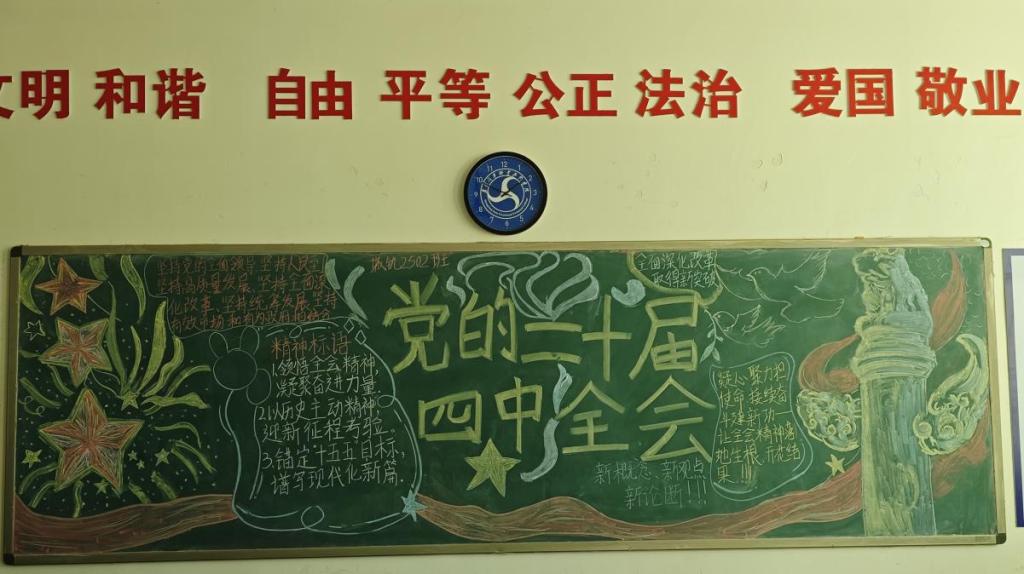 文明 和谐 自由 平等 公正 法治 爱国 敬业
12
11
1
10
2
9
3
8
4
7
5
6
坚持党的全面领导 坚持人民至上
坚持高质量发展 坚持全面深
化改革 坚持统筹发展 坚持
有效市场和有为政府相结合
2502班
党的二十届
四中全会
全面深化改革
精神标语
1.领悟全会精神
凝聚奋进力量
2.以历史主动精神
迎新征程考验
3.锚定十五五目标,
谱写现代化新篇
凝心聚力担
使命 接续奋
斗建新功
让全会精神落
地生根 开花结
果!!!
新概念、新观点
新论断!!!